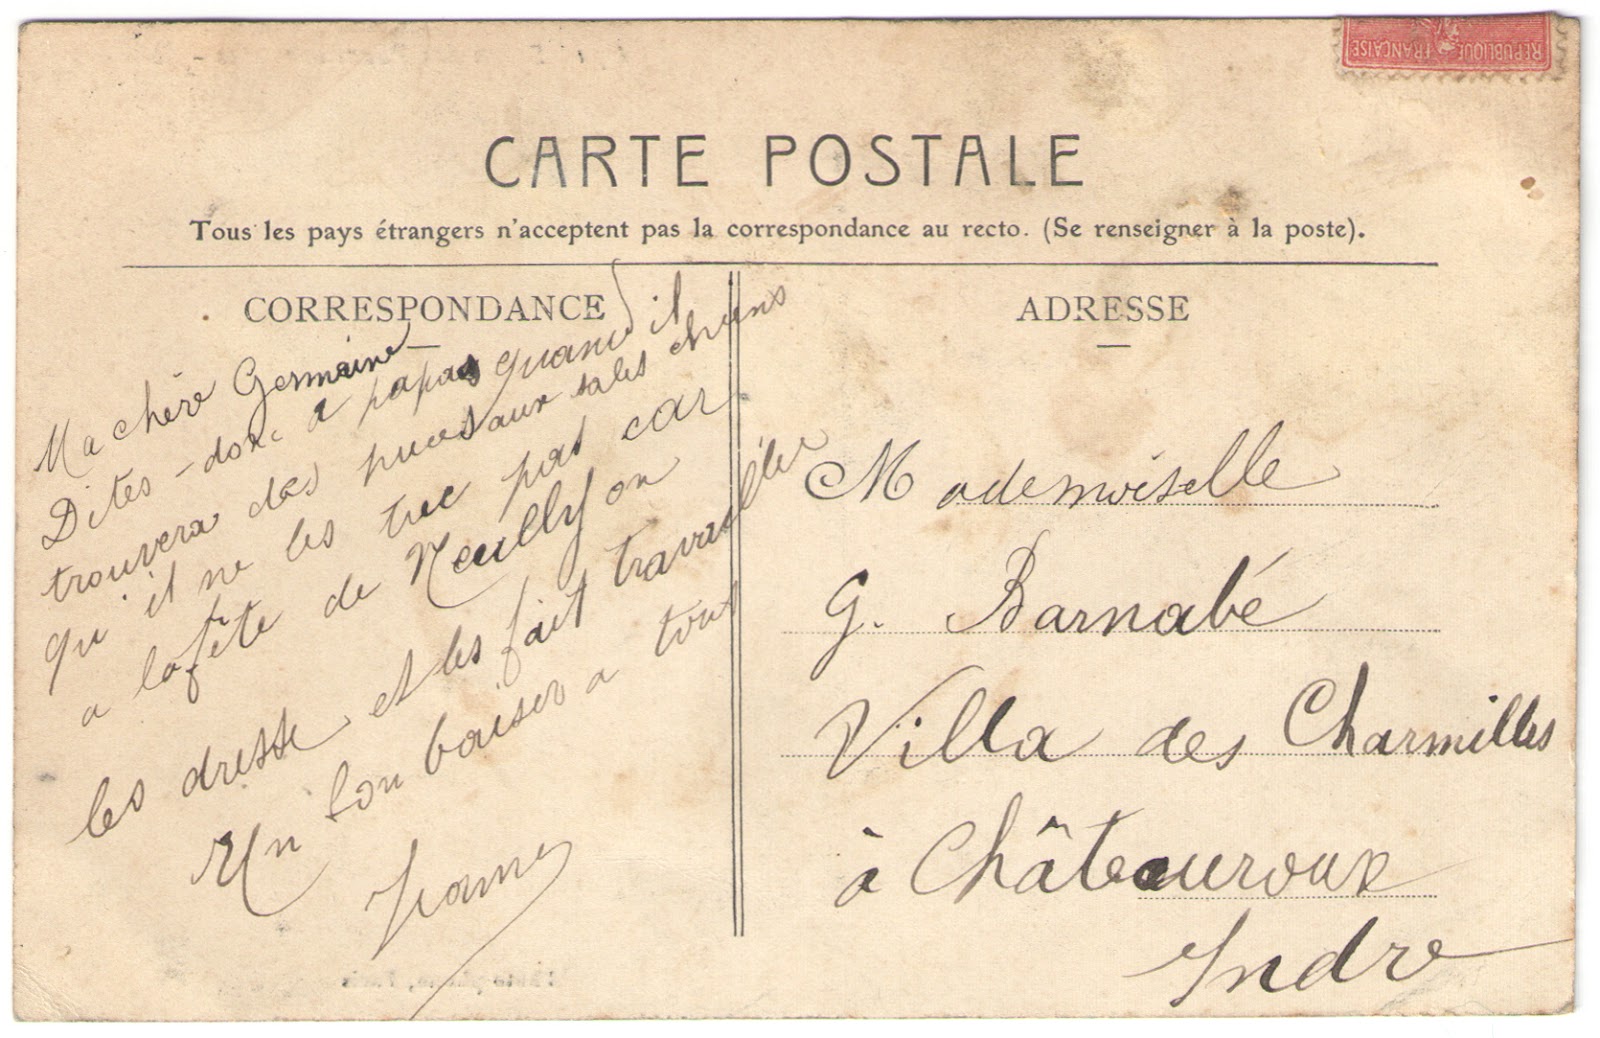 REPUBLIQUE FRANÇAISE
CARTE POSTALE
Tous les pays étrangers n'acceptent pas la correspondance au recto. (Se renseigner à la poste).
CORRESPONDANCE
Ma chère Germaine
Dites-donc a papa quand il
trouvera des puces aux sales chiens
qu'il ne les tue pas car
a la fête de Neuilly on
les dresse et les fait travailler
Un bon baiser a tous
ADRESSE
Mademoiselle
G. Barnabé
Villa des Charmilles
à Châteauroux
Indre